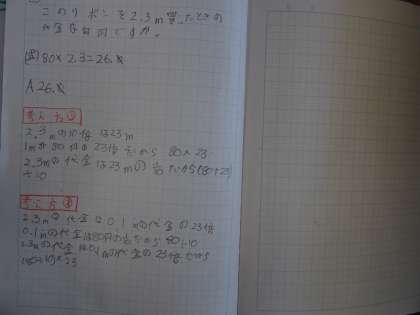 このリボンを2.3m買ったときの
代金は何円ですか。
(式)80×2.3=26.
A26.
考え方①
2.3mの10倍は23m
1mが80円の23倍だから 80×23
2.3mの代金は23mの だから(80×23)
÷10
考え方②
2.3mの代金は0.1mの代金の23倍
0.1mの代金は80円の だから 80÷10
2.3mの代金は0.1mの代金の23倍だから
(80÷10)×23